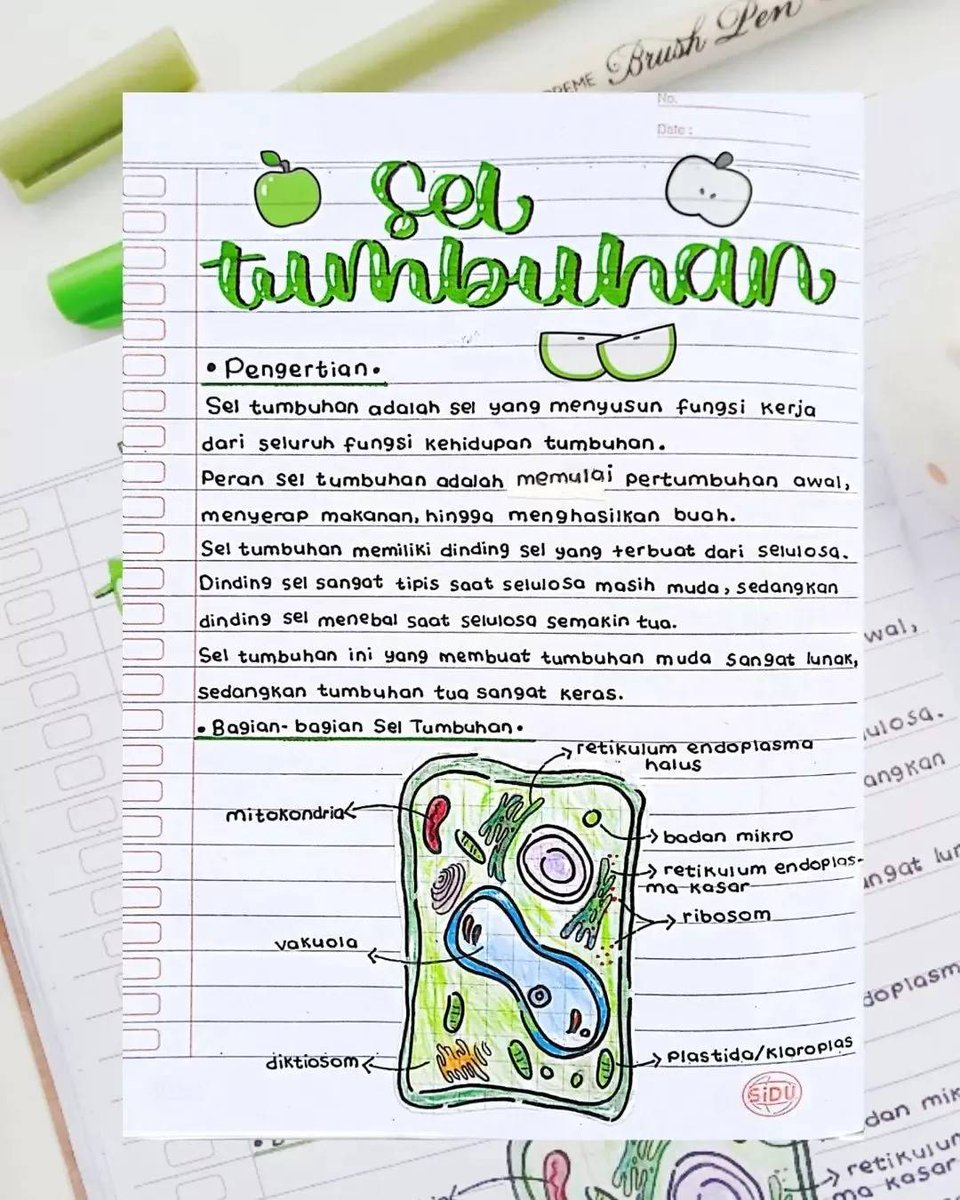 Brush Pen
No.
Date :
Sel
tumbuhan
• Pengertian •
Sel tumbuhan adalah sel yang menyusun fungsi kerja
dari seluruh fungsi kehidupan tumbuhan.
Peran sel tumbuhan adalah memulai pertumbuhan awal,
menyerap makanan, hingga menghasilkan buah.
Sel tumbuhan memiliki dinding sel yang terbuat dari selulosa.
Dinding sel sangat tipis saat selulosa masih muda, sedangkan
dinding sel menebal saat selulosa semakin tua.
Sel tumbuhan ini yang membuat tumbuhan muda sangat lunak,
sedangkan tumbuhan tua sangat keras.
• Bagian-bagian Sel Tumbuhan •
retikulum endoplasma
halus
mitokondria
badan mikro
retikulum endoplas-
ma kasar
ribosom
vakuola
diktiosom
Plastida/Kloroplas
SiDU
wal,
ulosa.
angkan
ngat lun
doplasm
adan mik
retikulum
ma kasar